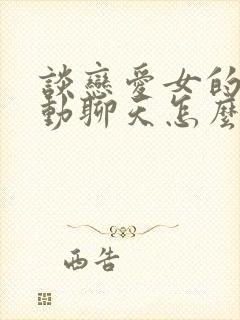 談戀愛女的
動聊天怎麼
西告